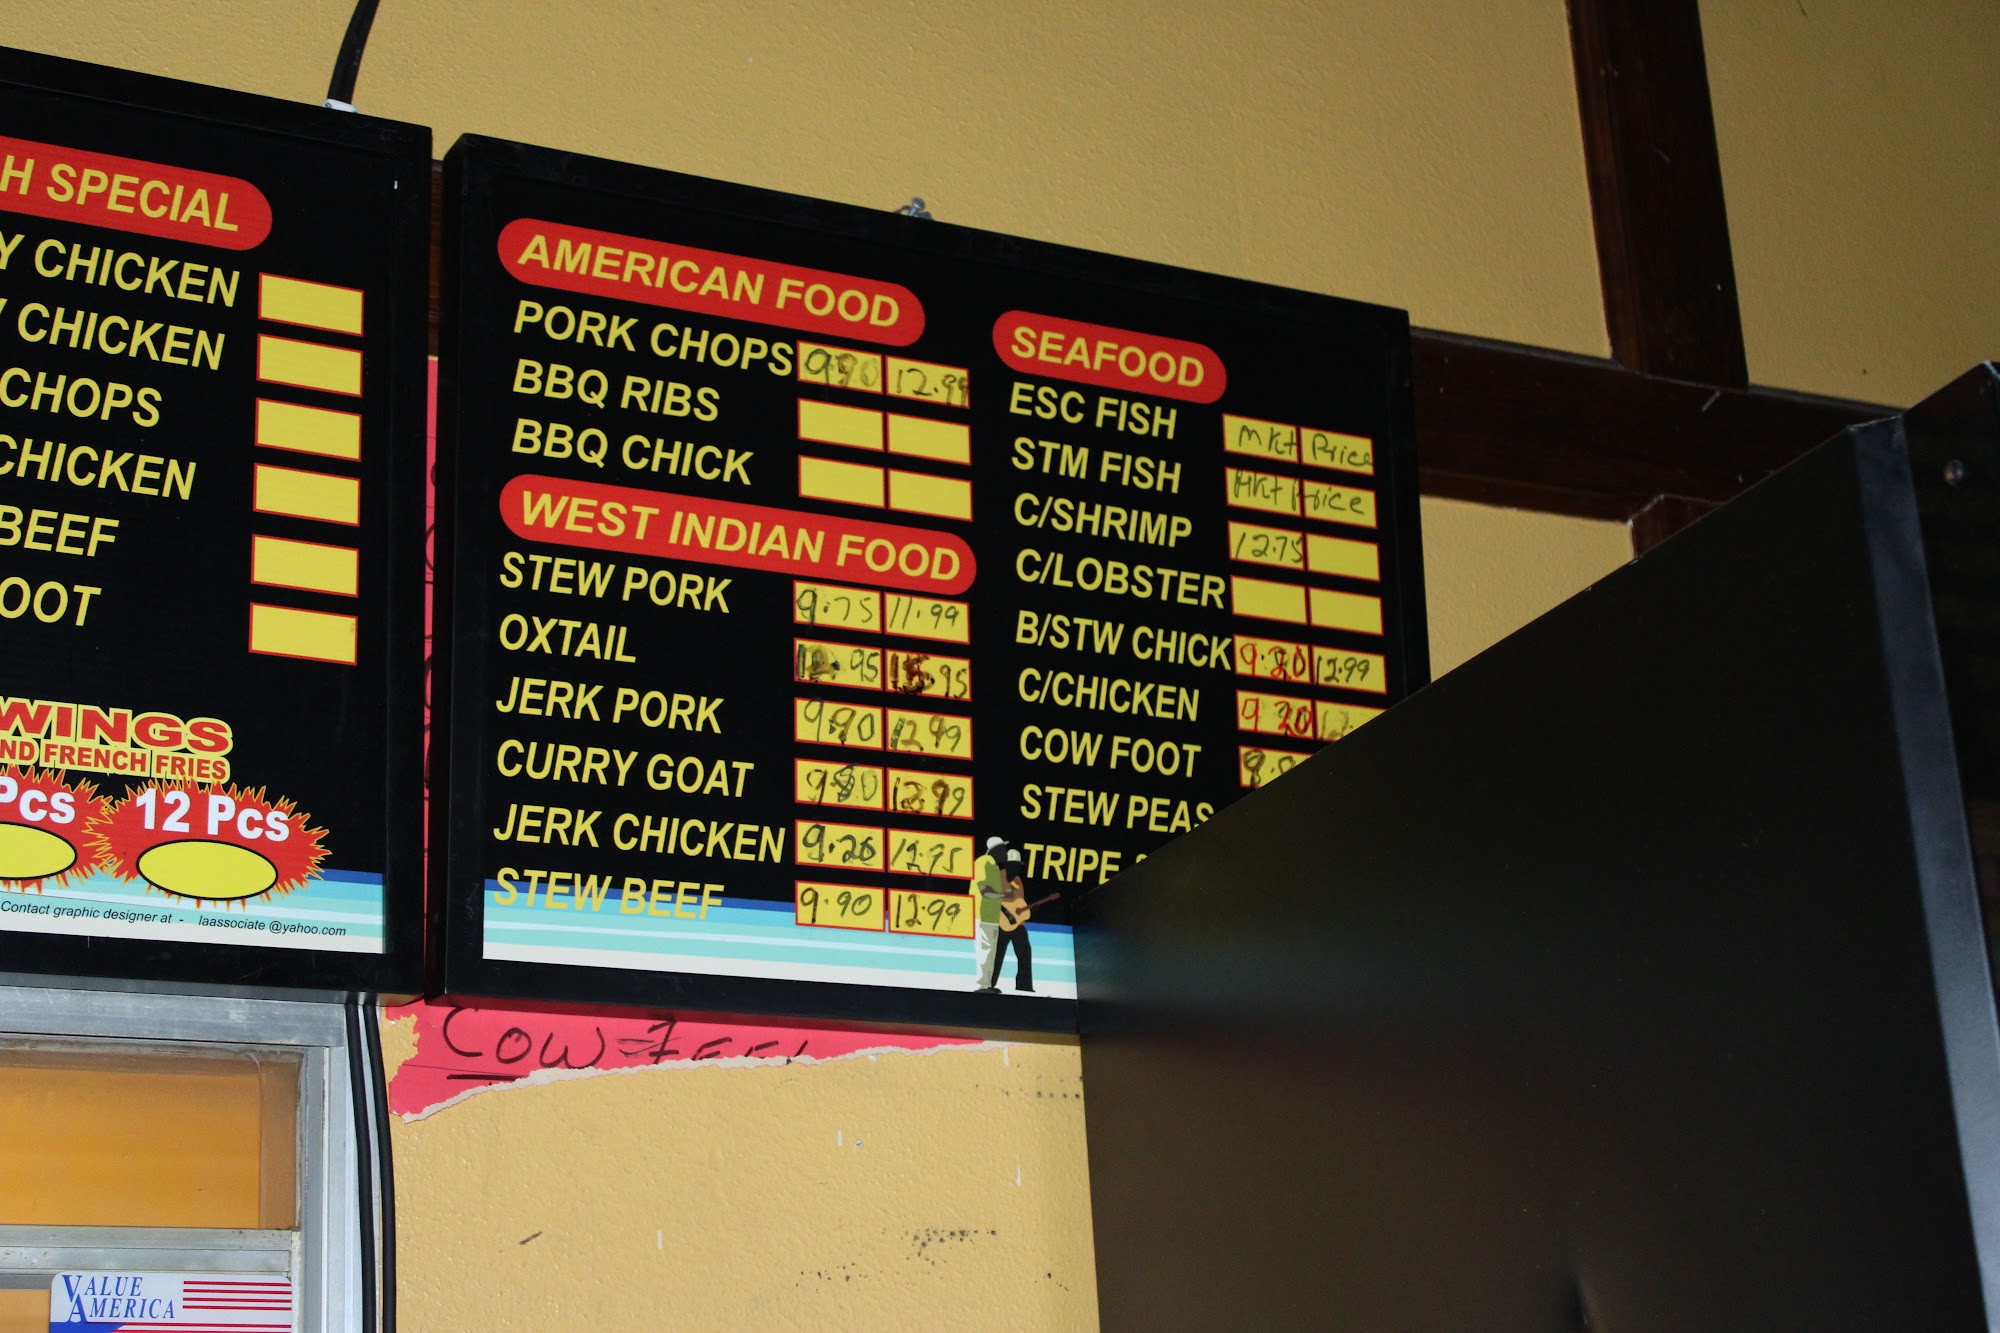 H SPECIAL
Y CHICKEN
Y CHICKEN
CHOPS
CHICKEN
BEEF
OOT
WINGS
ND FRENCH FRIES
Pcs
12 Pcs
Contact graphic designer at - laassociate @yahoo.com
AMERICAN FOOD
PORK CHOPS 12.99
BBQ RIBS
BBQ CHICK
WEST INDIAN FOOD
STEW PORK 9.75 11.99
OXTAIL 15.95
JERK PORK 9.90 12.99
CURRY GOAT 12.99
JERK CHICKEN 9.20 12.75
STEW BEEF 9.90 12.99
SEAFOOD
ESC FISH Mkt Price
STM FISH Mkt Price
C/SHRIMP 12.75
C/LOBSTER
B/STW CHICK 9.20 12.99
C/CHICKEN 9 20
COW FOOT
STEW PEAS
TRIPE
COW
VALUE
AMERICA